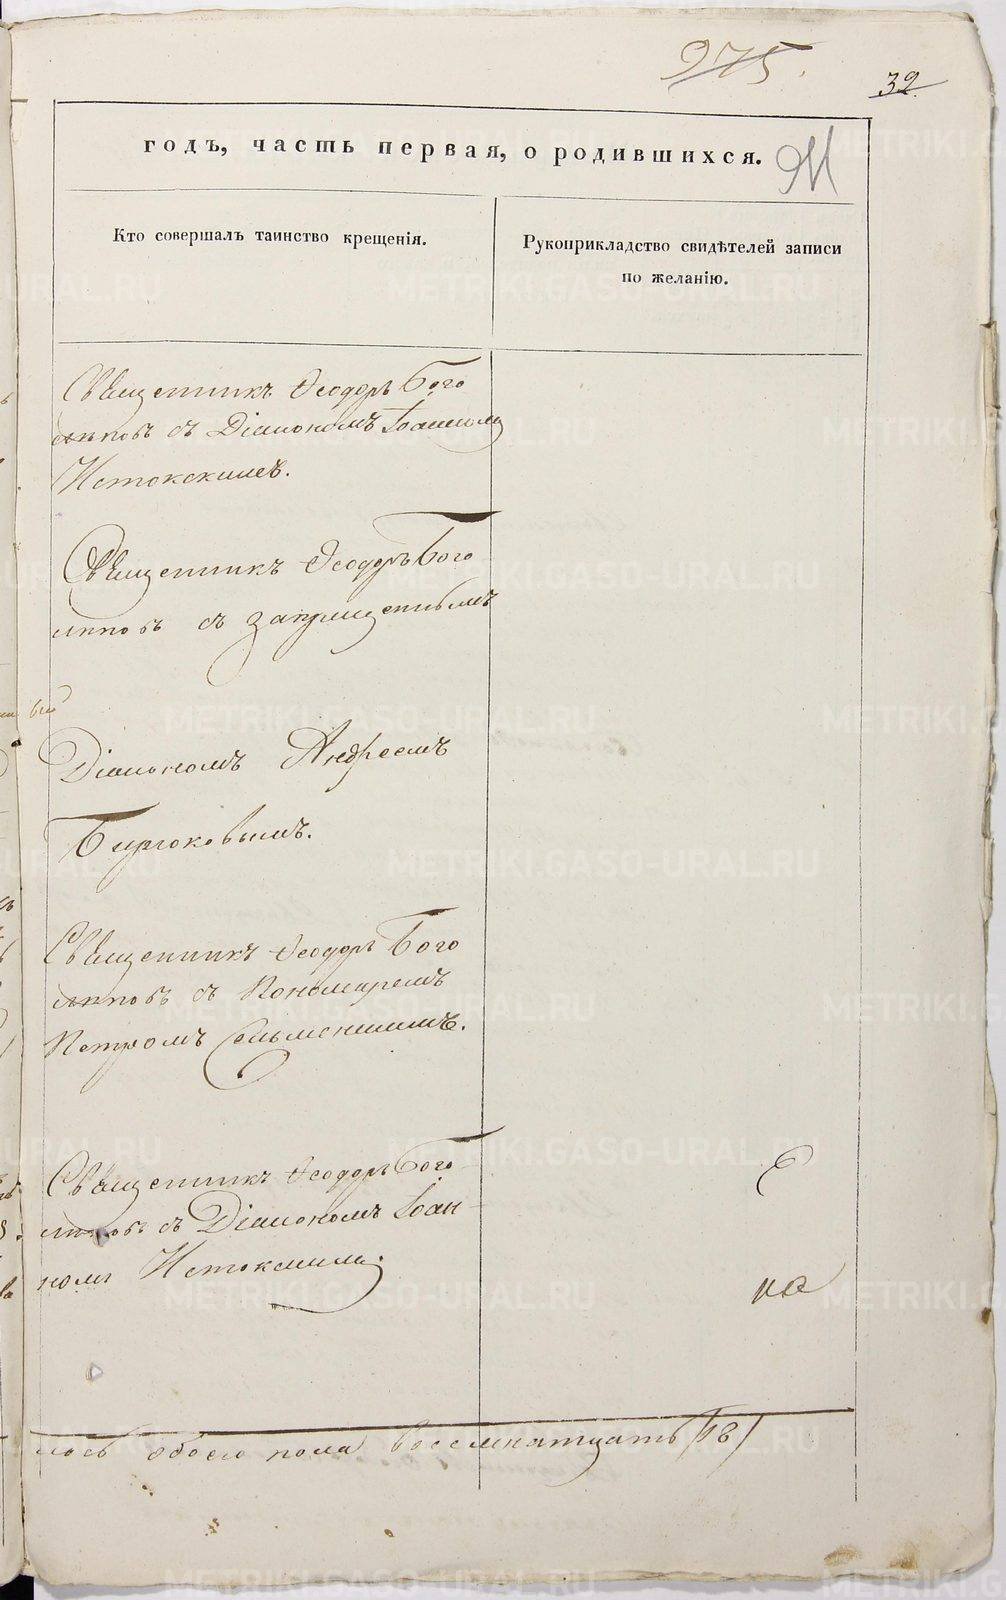 975.
32.
годъ, часть первая, о родившихся.
Кто совершалъ таинство крещенія.
Рукоприкладство свидѣтелей записи
по желанію.
Священникъ Ѳеодоръ Бого
лѣповъ съ Діакономъ Іоанномъ
Истокскимъ.
Священникъ Ѳеодоръ Бого
лѣповъ съ запрещеннымъ
Діакономъ Андреемъ
Бирюковымъ.
Священникъ Ѳеодоръ Бого
лѣповъ съ Пономаремъ
Петромъ
Священникъ Ѳеодоръ Бого
лѣповъ съ Діакономъ Іоан-
номъ Истокскимъ.
на
лось обоего пола восемнатцать /18/
METRIKI.GASO-URAL.RU